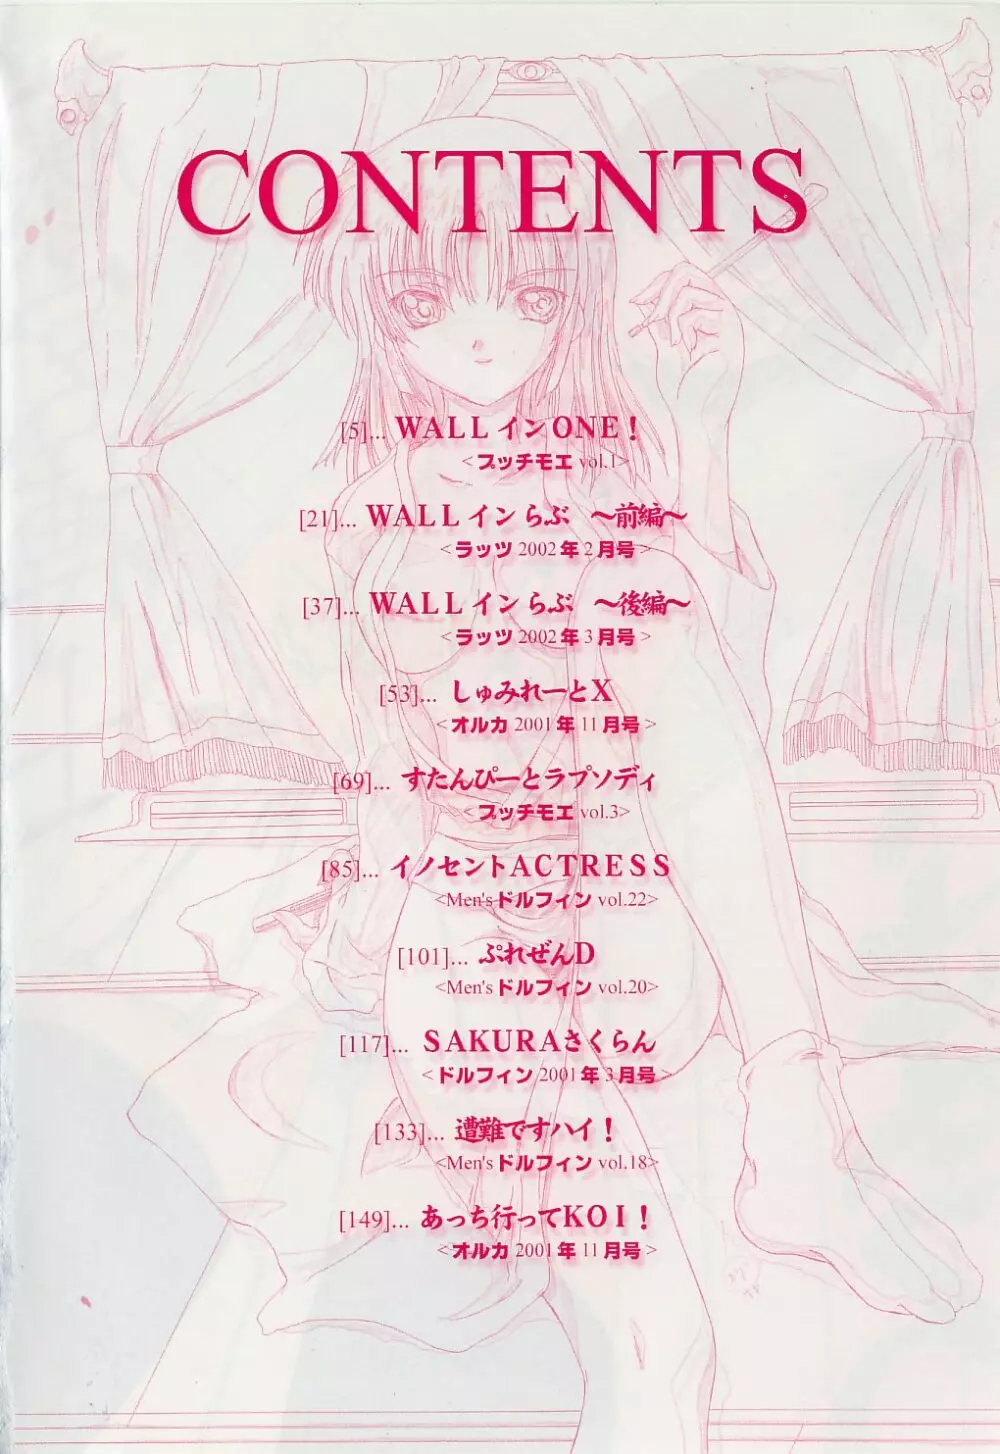 CONTENTS
[5]... WALLインONE！
<プッチモエ vol.1>
[21]... WALLインらぶ　～前編～
<ラッツ 2002年2月号>
[37]... WALLインらぶ　～後編～
<ラッツ 2002年3月号>
[53]... しゅみれーとX
<オルカ 2001年11月号>
[69]... すたんぴーとラプソディ
<プッチモエ vol.3>
[85]... イノセントACTRESS
<Men'sドルフィン vol.22>
[101]... ぷれぜんD
<Men'sドルフィン vol.20>
[117]... SAKURAさくらん
<ドルフィン 2001年3月号>
[133]... 遭難ですハイ！
<Men'sドルフィン vol.18>
[149]... あっち行ってKOI！
<オルカ 2001年11月号>